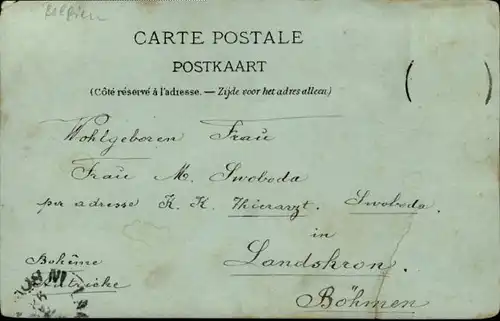 Belgien
CARTE POSTALE
POSTKAART
(Côté réservé à l'adresse. — Zijde voor het adres alleen)
Wohlgeboren Frau
Frau M. Swoboda
per adresse K. K. Thierarzt. Swoboda.
in
Landskron.
Bohême
Böhmen